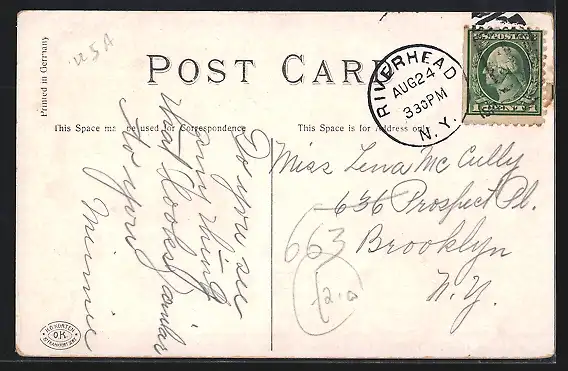 Printed in Germany
USA
POST CARD
RIVERHEAD
AUG 24
330PM
N.Y.
U.S. POSTAGE
1 CENT 1
This Space may be used for Correspondence
This Space is for Address only
Do you see
any thing
that looks familiar
to you
Minnie
Miss Lena McCully
636 Prospect Pl.
663
Brooklyn
N.Y.
OK